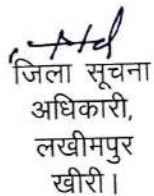 जिला सूचना
अधिकारी,
लखीमपुर
खीरी।